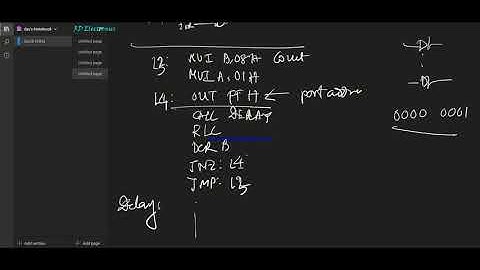 RD Electronics
Untitled page
Untitled page
Untitled page
Untitled page
L3: MVI B,08H Count
MVI A, 01H
L4: OUT PTH ← port address
CALL DELAY
RLC
DCR B
JNZ: L4
JMP: L3
Delay:
0000 0001
Add section
Add page